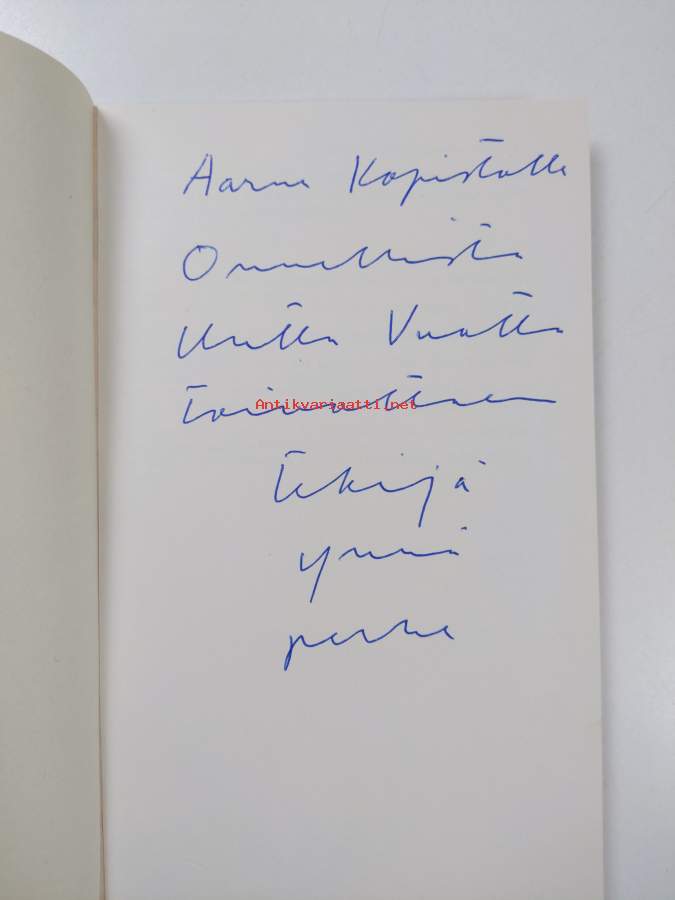 Aarne Kopistolle
Onnellista
Uutta Vuotta
toivottaen
Antikvariaatti.net
tekijä
ynnä
perhe